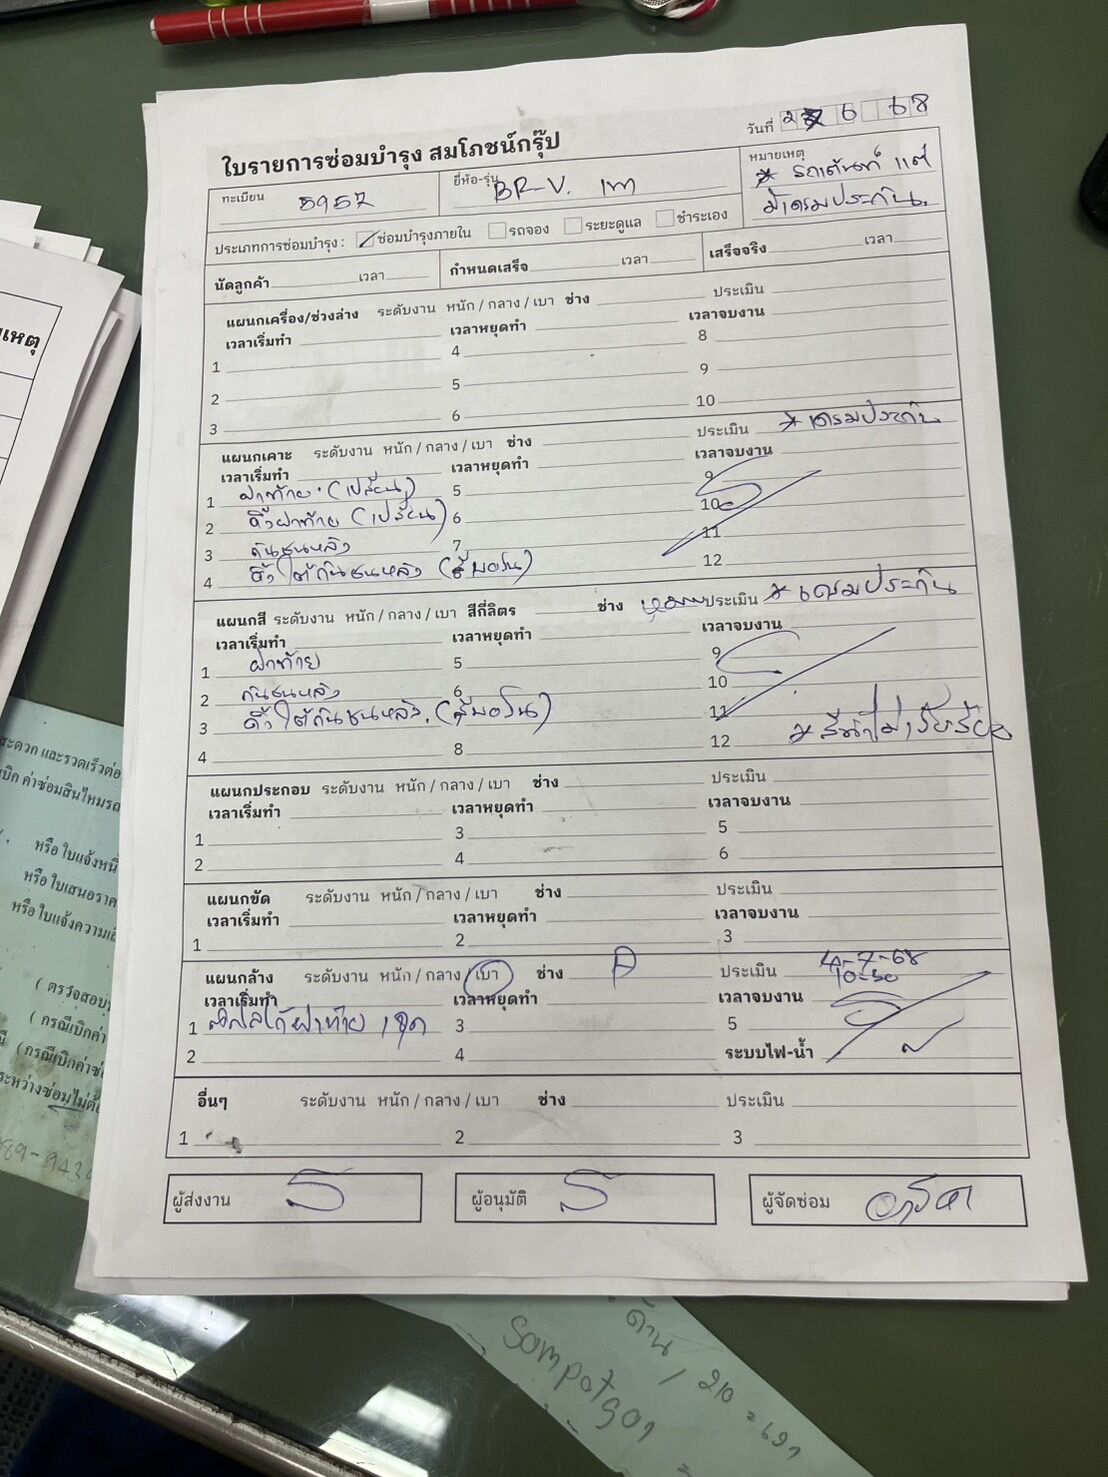 ใบรายการซ่อมบำรุง สมโภชน์กรุ๊ป
วันที่ 6 68
ทะเบียน 5957 ยี่ห้อ-รุ่น BR-V. เทา
หมายเหตุ
ประเภทการซ่อมบำรุง : ซ่อมบำรุงภายใน รถจอง ระยะดูแล ชำระเอง
นัดลูกค้า เวลา กำหนดเสร็จ เวลา เสร็จจริง เวลา
แผนกเครื่อง/ช่วงล่าง ระดับงาน หนัก / กลาง / เบา ช่าง ประเมิน
เวลาเริ่มทำ เวลาหยุดทำ เวลาจบงาน
1 4 8
2 5 9
3 6 10
แผนกเคาะ ระดับงาน หนัก / กลาง / เบา ช่าง ประเมิน * เคลมประกัน
เวลาเริ่มทำ เวลาหยุดทำ เวลาจบงาน
1 ฝาท้าย (เปลี่ยน) 5 9
2 คิ้วฝาท้าย (เปลี่ยน) 6 10
3 กันชนหลัง 7 11
4 คิ้วใต้กันชนหลัง 12
แผนกสี ระดับงาน หนัก / กลาง / เบา สีกี่ลิตร ช่าง ประเมิน * เคลมประกัน
เวลาเริ่มทำ เวลาหยุดทำ เวลาจบงาน
1 ฝาท้าย 5 9
2 กันชนหลัง 6 10
3 คิ้วใต้กันชนหลัง 11
4 8 12
แผนกประกอบ ระดับงาน หนัก / กลาง / เบา ช่าง ประเมิน
เวลาเริ่มทำ เวลาหยุดทำ เวลาจบงาน
1 3 5
2 4 6
แผนกขัด ระดับงาน หนัก / กลาง / เบา ช่าง ประเมิน
เวลาเริ่มทำ เวลาหยุดทำ เวลาจบงาน
1 2 3
แผนกล้าง ระดับงาน หนัก / กลาง / เบา ช่าง ประเมิน 4-7-68
เวลาเริ่มทำ เวลาหยุดทำ เวลาจบงาน 10-30
1 ฝาท้าย 1 ชุด 3 5
2 4 ระบบไฟ-น้ำ
อื่นๆ ระดับงาน หนัก / กลาง / เบา ช่าง ประเมิน
1 2 3
ผู้ส่งงาน ผู้อนุมัติ ผู้จัดซ่อม
เหตุ
สะดวก และรวดเร็วต่อ
เบิก ค่าซ่อมสินไหมรถ
หรือ ใบแจ้งหนี้
หรือ ใบเสนอราค
หรือ ใบแจ้งความ
( ตรวจสอบ
( กรณีเบิกค่า
(กรณีเบิกค่าซ่
ระหว่างซ่อมไม่ต้อ
ด้าน / 210